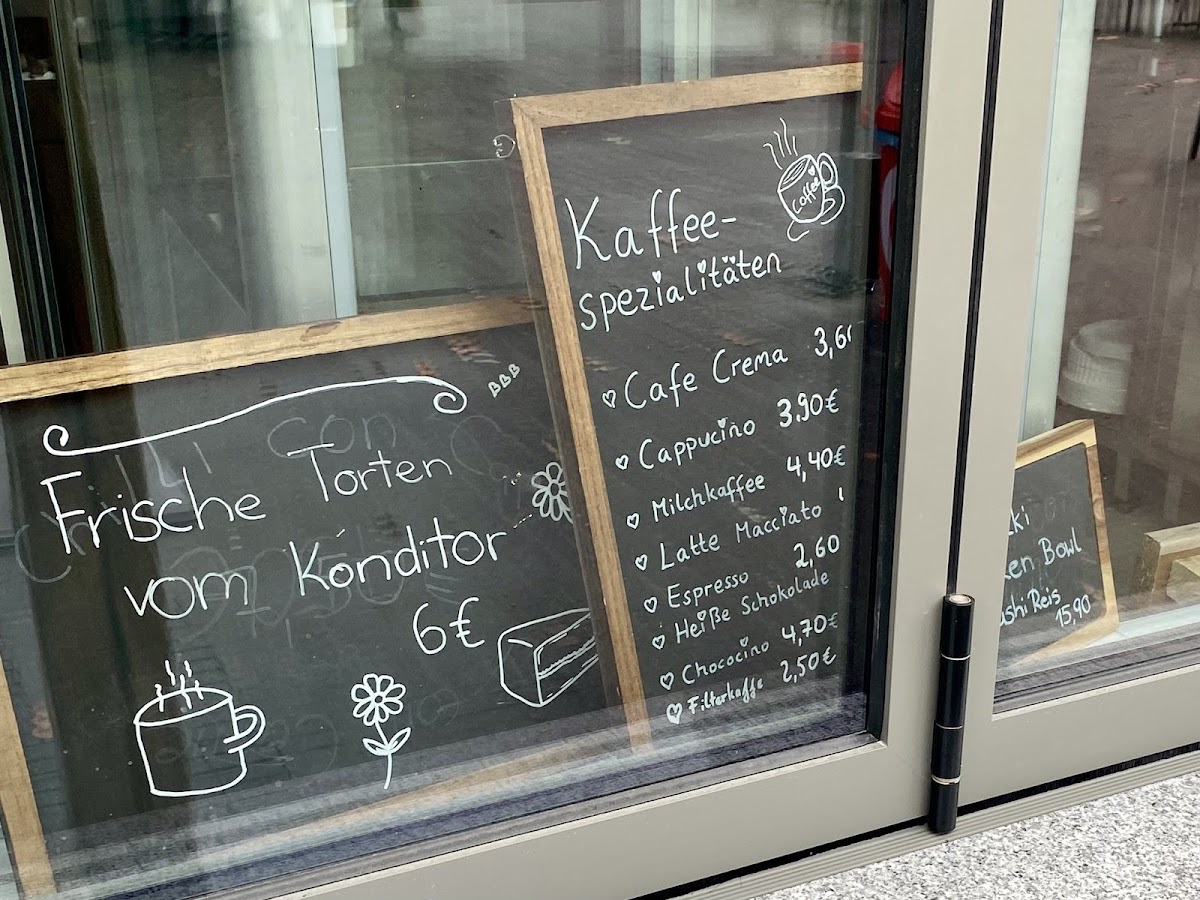 Frische Torten
vom Konditor
6€
Coffee
Kaffee-
spezialitäten
Cafe Crema 3,6
Cappucino 3.90€
Milchkaffee 4,40€
Latte Macciato
Espresso 2,60
Heiße Schokolade
Chococino 4,70€
Filterkaffe 2,50€
Bowl
Reis
15,90